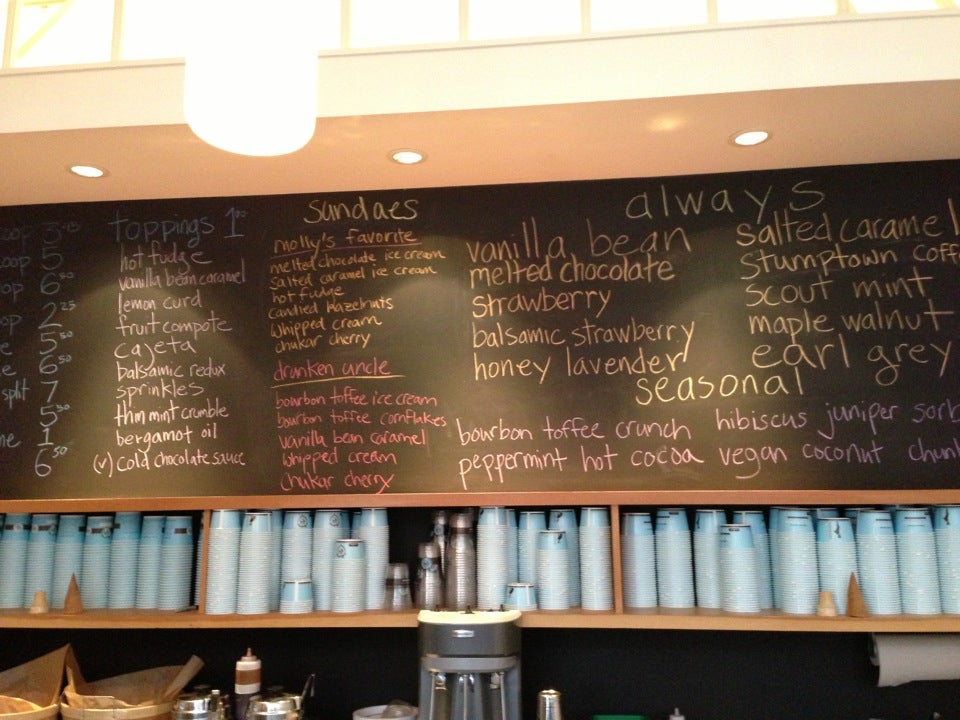 3
5
6 50
2 25
5 50
6 50
split 7
5 50
1
6 50
toppings 1 00
hot fudge
vanilla bean caramel
lemon curd
fruit compote
cajeta
balsamic redux
sprinkles
thin mint crumble
bergamot oil
(v) cold chocolate sauce
sundaes
molly's favorite
melted chocolate ice cream
salted caramel ice cream
hot fudge
candied hazelnuts
whipped cream
chukar cherry
drunken uncle
bourbon toffee ice cream
bourbon toffee cornflakes
vanilla bean caramel
whipped cream
chukar cherry
always
vanilla bean
melted chocolate
strawberry
balsamic strawberry
honey lavender
salted caramel
stumptown coff
scout mint
maple walnut
earl grey
seasonal
bourbon toffee crunch
peppermint hot cocoa
hibiscus juniper sorb
vegan coconut chun